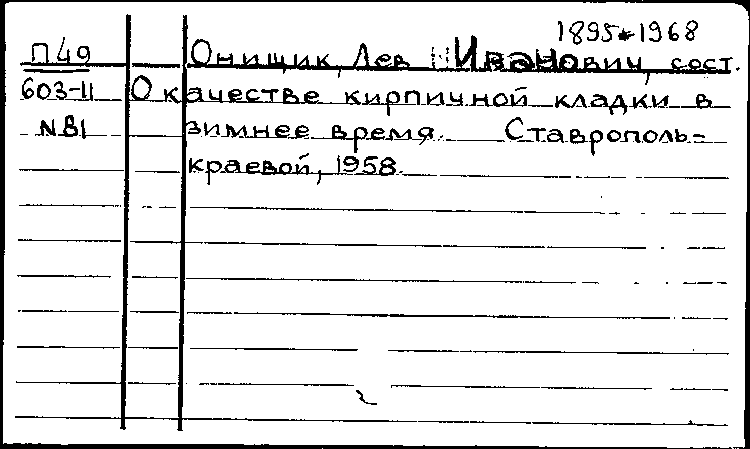 1895-1968
П49 Онищик, Лев Иванович, сост.
603-11 О качестве кирпичной кладки в
N81 зимнее время. Ставрополь-
краевой, 1958.